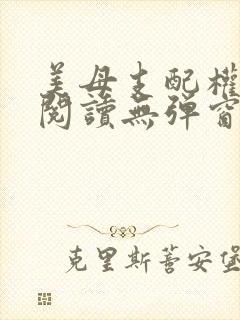 美母支配權
閱讀無彈窗
克里斯蒂安堡